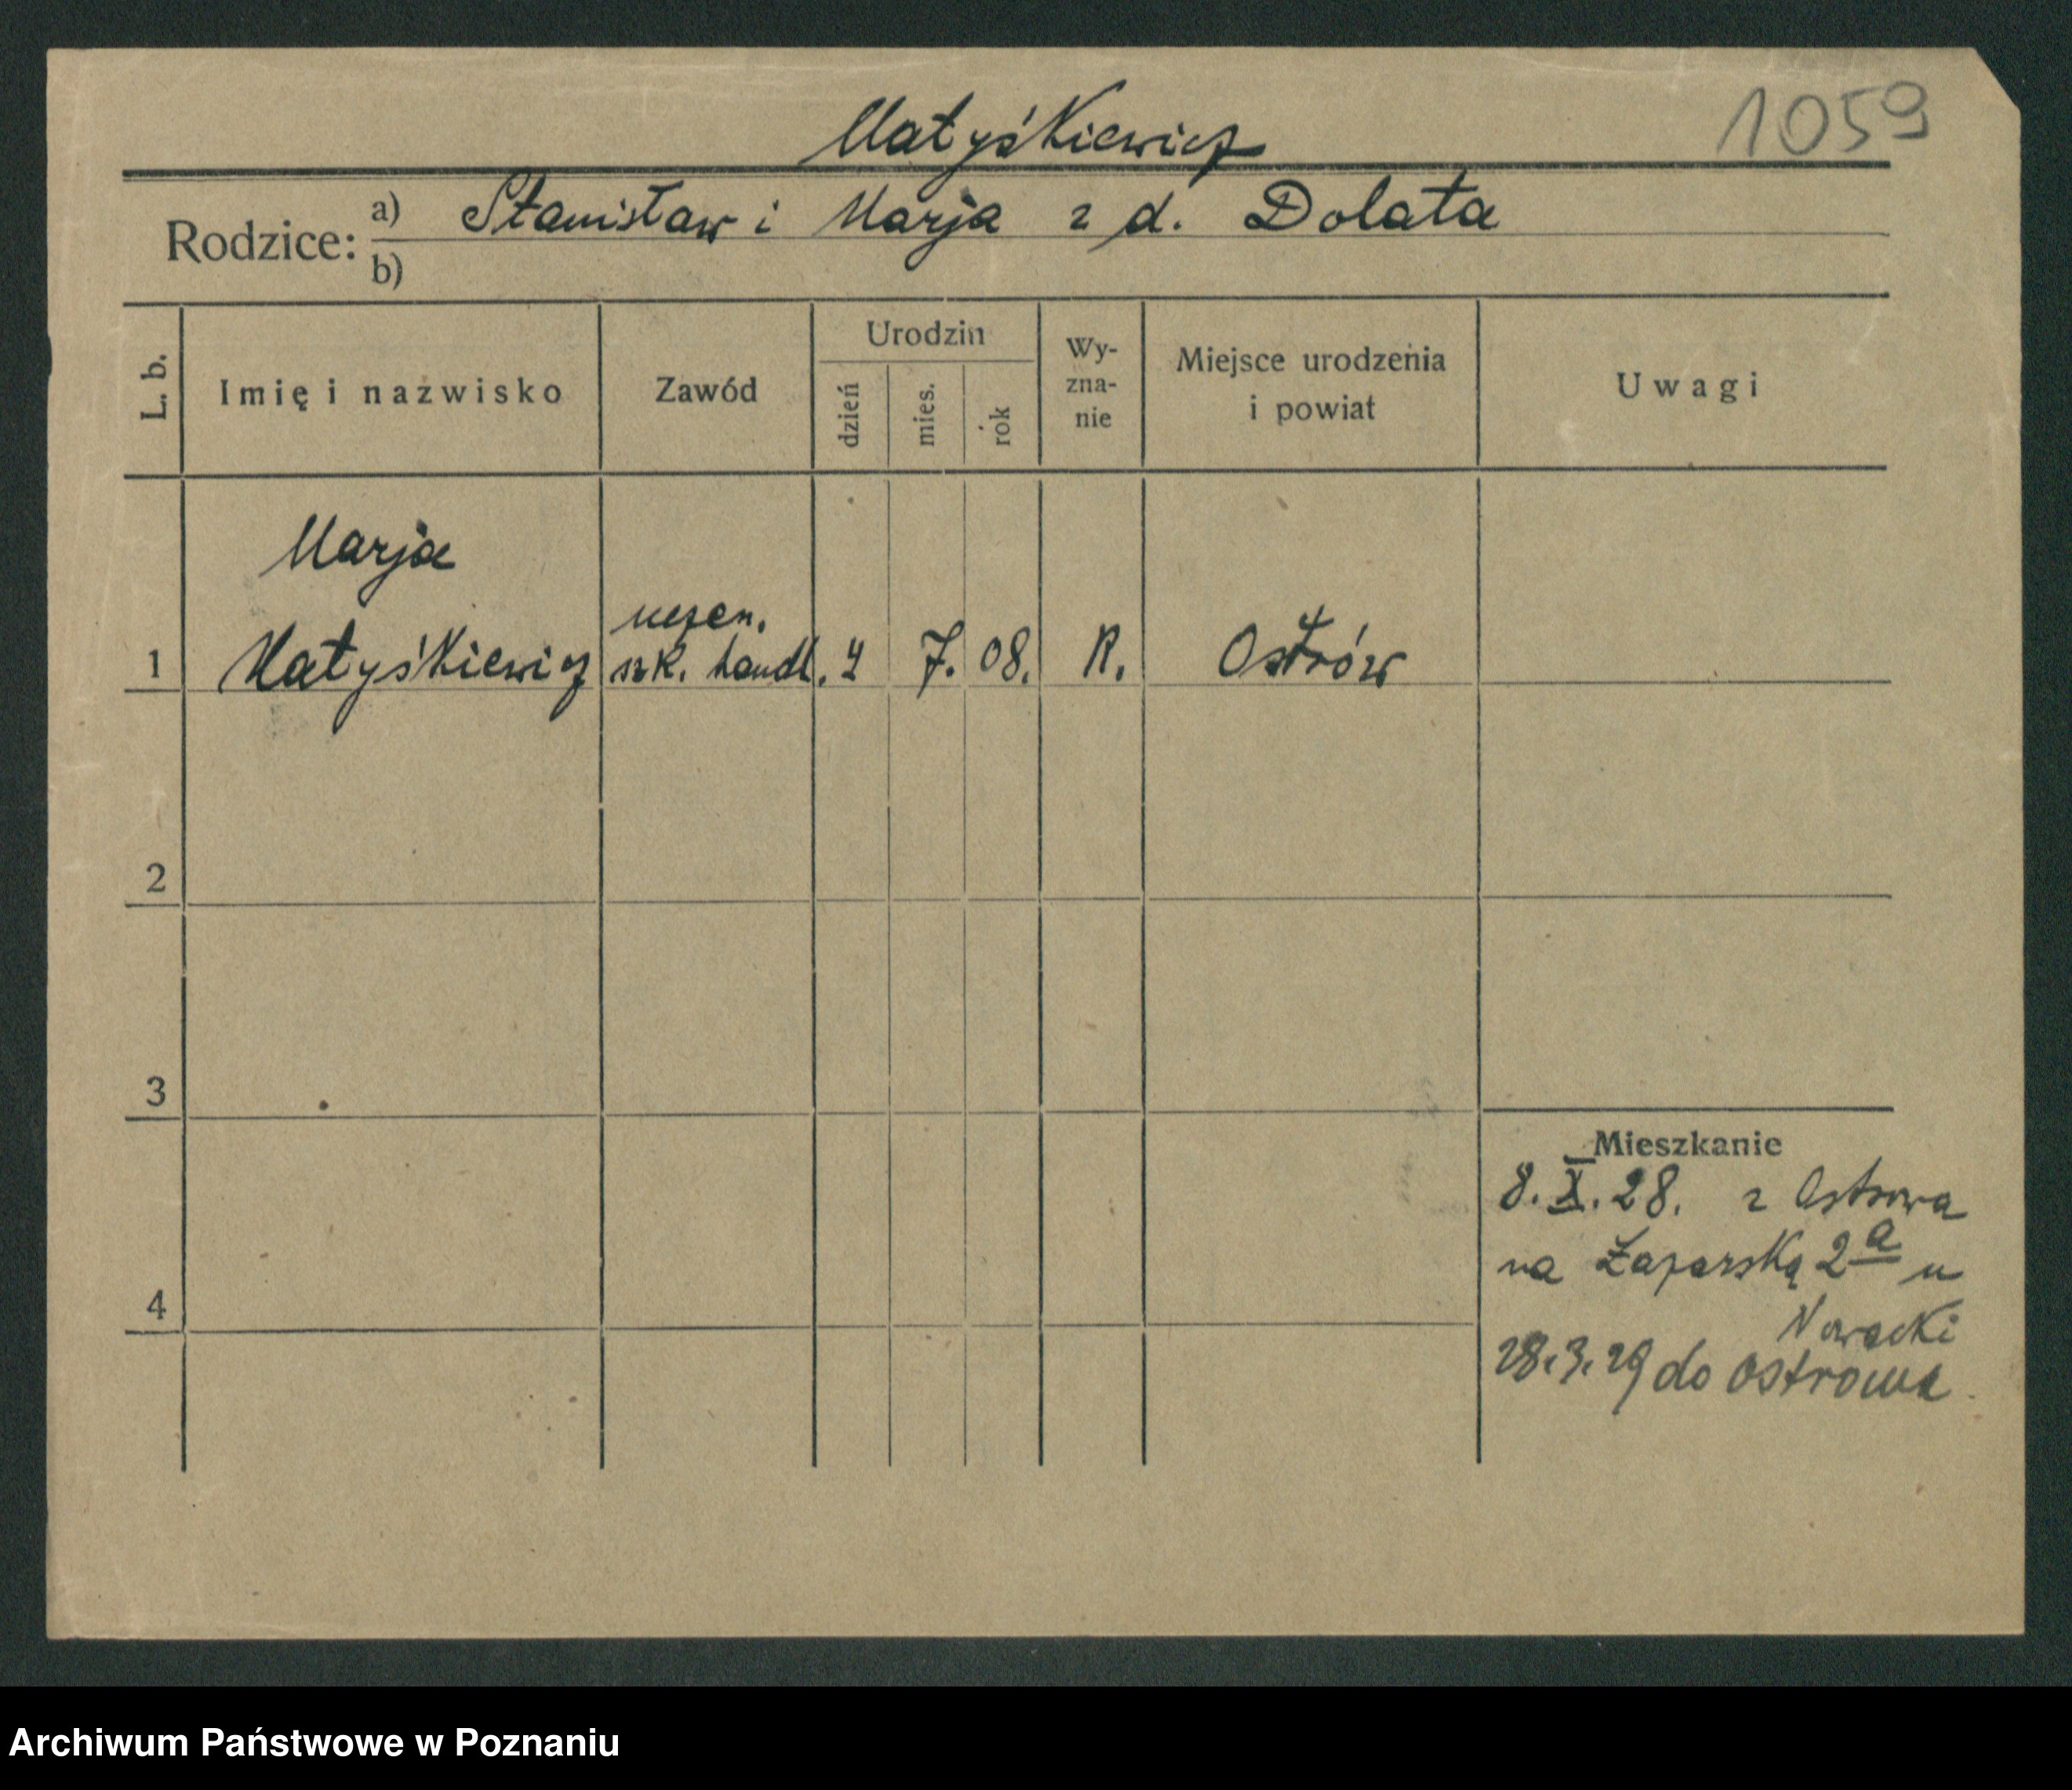 Matyśkiewicz
1059
Rodzice: a) Stanisław i Marja z d. Dolata
b)
L. b. Imię i nazwisko Zawód Urodzin dzień mies. rok Wy-zna-nie Miejsce urodzenia i powiat Uwagi
Marja
uczen.
1 Matyśkiewicz szk. handl. 7. 08. R. Ostrów
2
3
4
Mieszkanie
8. X. 28. z Ostrowa
na 2a u
Nowacki
28.3.29 do Ostrowa
Archiwum Państwowe w Poznaniu